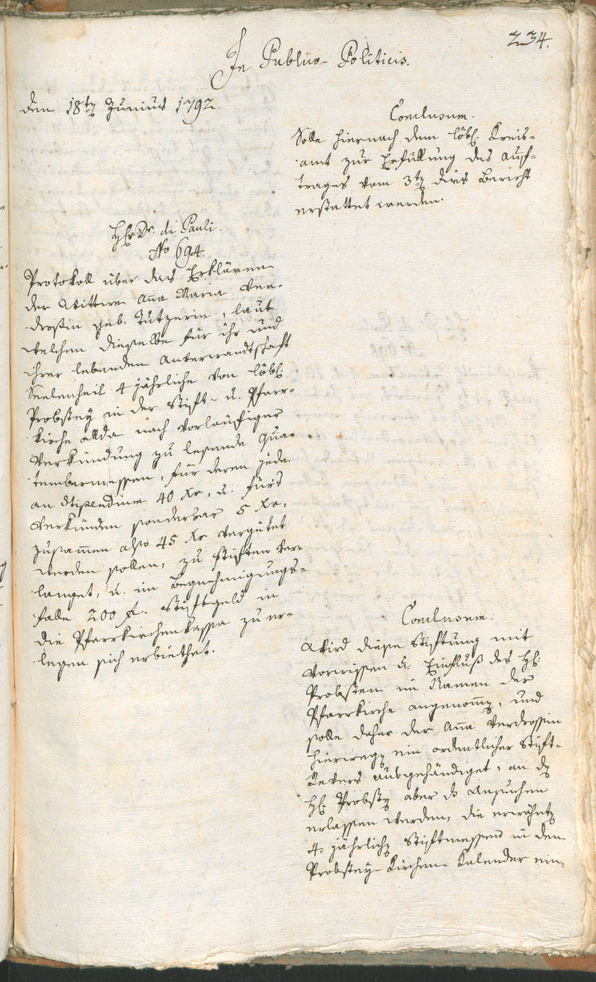 234.
In Publico-Politicis.
den 18tn Junius 1792
Conclusum.
Solle hiernach dem löbl. Kreis-
amt zur Erfüllung des Auf-
trages vom 3tn dies Bericht
erstattet werden.
Hr Dr. di Pauli.
No 694.
Protokoll über das Erklären
der Wittwe Aña Maria Ver-
droßin geb. Tutzerin, laut
welchem dieselbe für ihr und
ihrer lebenden Anverwandtschaft
Seelenheil 4 jährliche von löbl.
Probstey in der Stift- u. Pfarr-
kirche allda nach vorläufiger
Verkündung zu lesende Qua-
tembermessen, für deren jede
an Stipendium 40 Xr, u. fürs
Verkünden sonderbar 5 Xr,
zusam̅en also 45 Xr vergütet
werden sollen, zu stiften ver-
langet, u. im Begnehmigungs-
falle 200 fl. Stiftgeld in
die Pfarrkirchenkassa zu er-
legen sich erbiethet.
Conclusum.
Wird diese Stiftung mit
Vorwissen u. Einfluß des H.
Probsten im Namen der
Pfarrkirche angenom̅en, und
solle daher der Aña Verdroßin
hierwegen ein ordentlicher Stift-
Revers ausgehändiget, an den
H. Probsten aber das Ansuchen
erlassen werden, die erwähnten
4. jährlichen Stiftmessen in den
Probstey-Kirchen-Kalender ein-